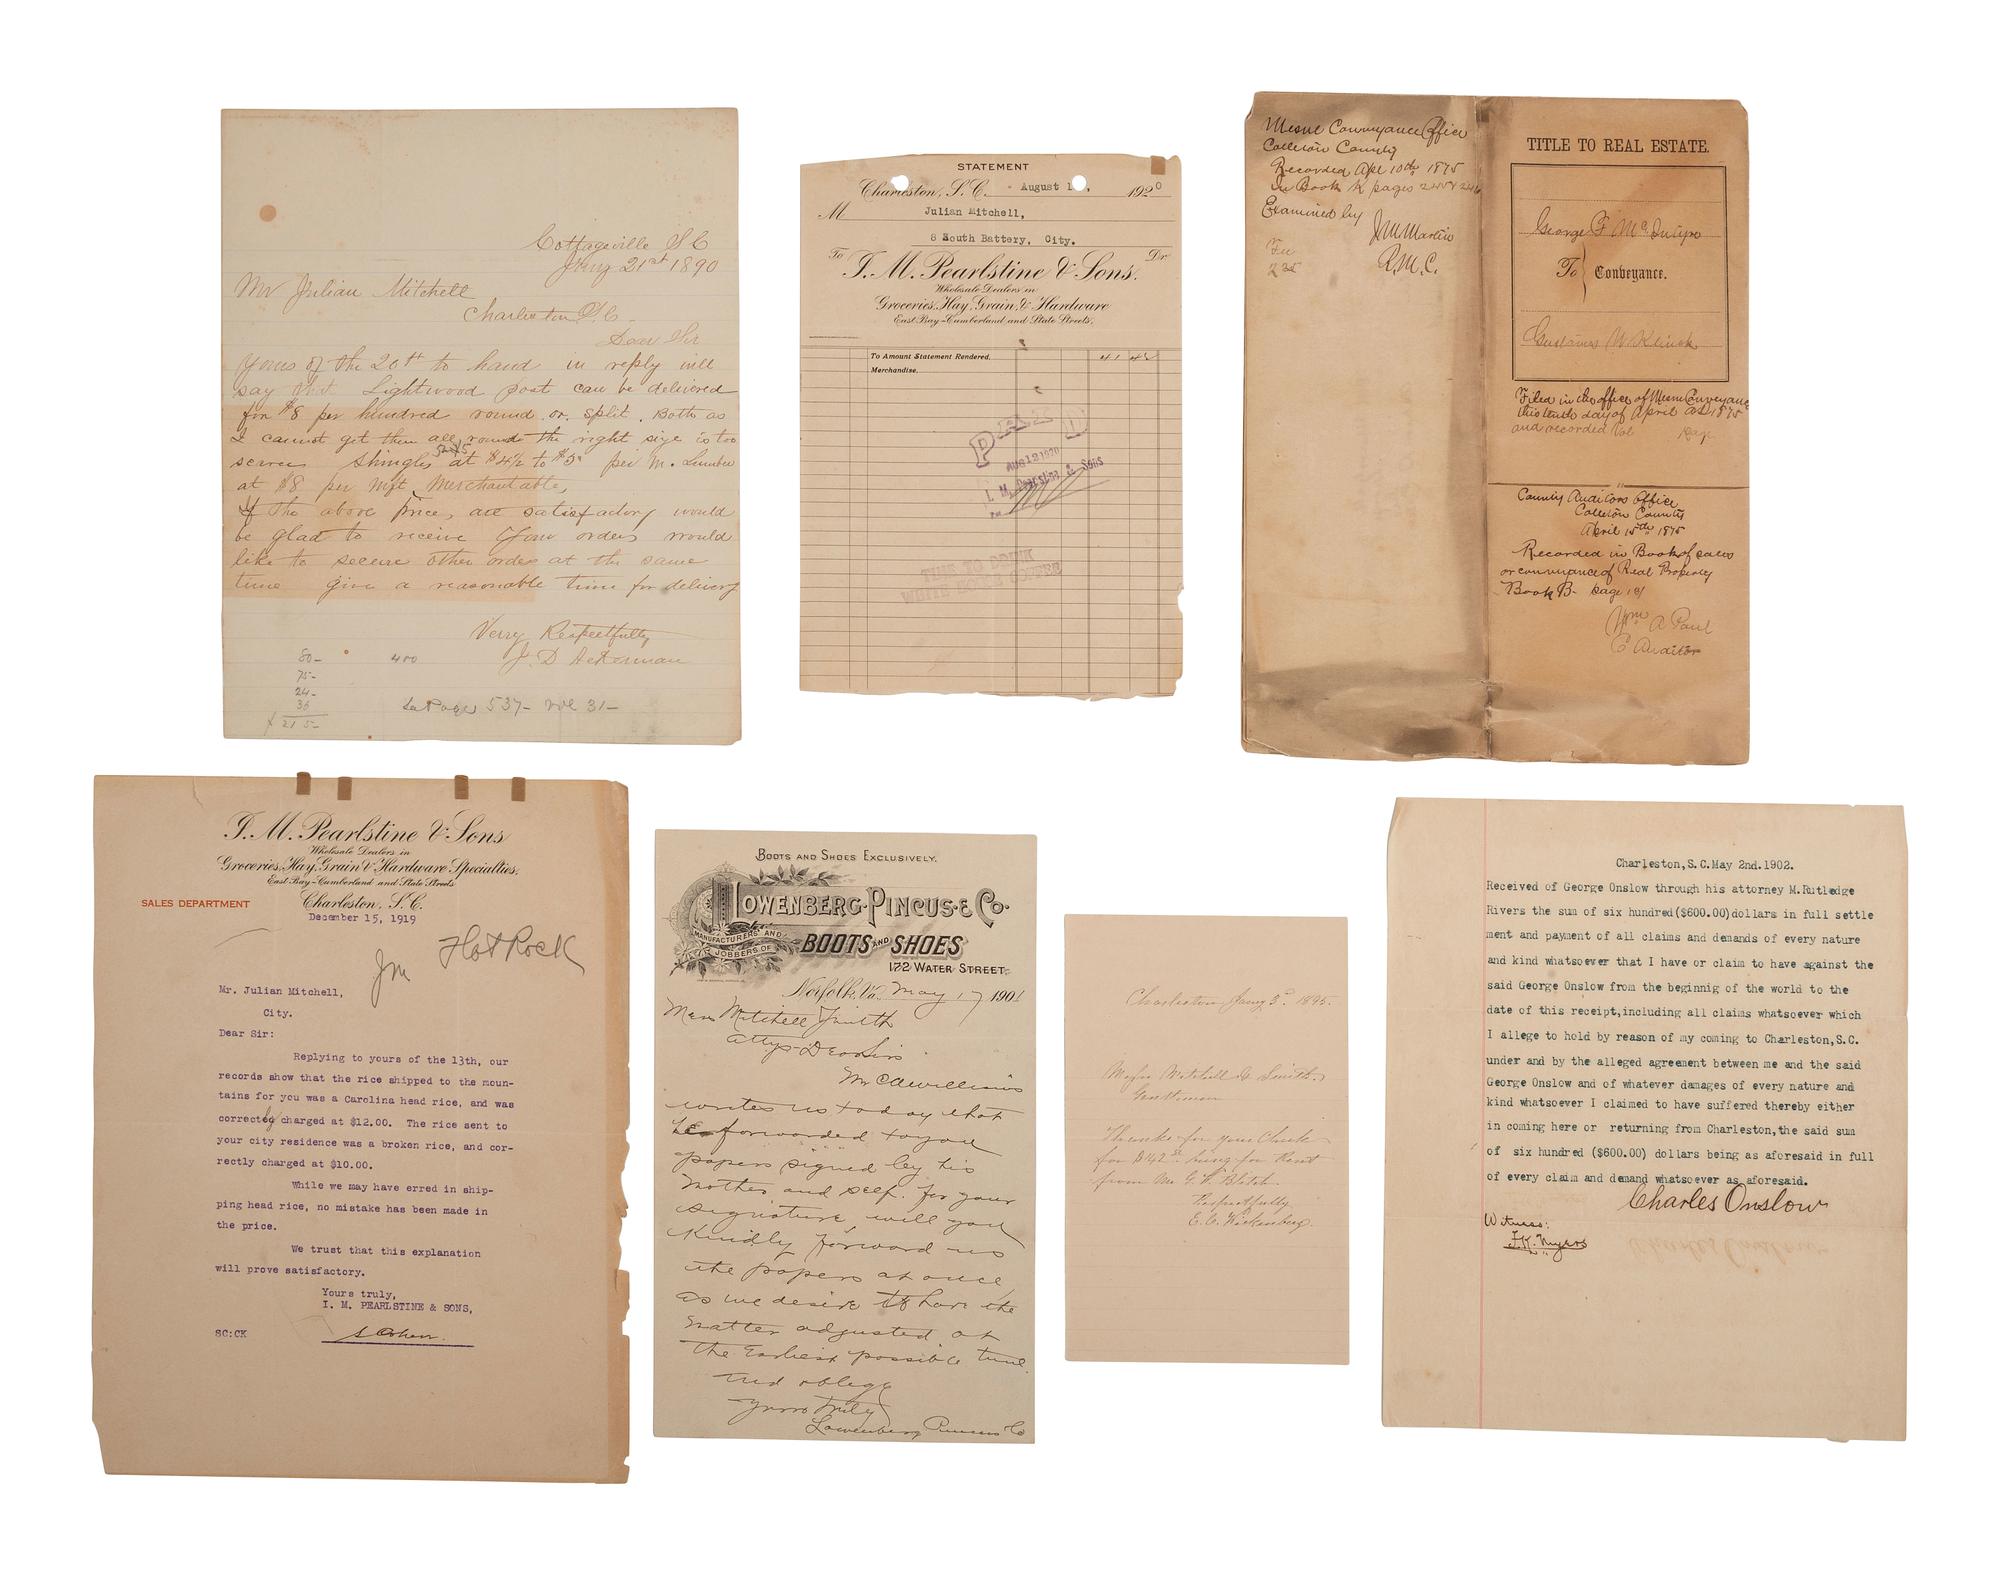 Cottageville S C
Jany 21st 1890
Mr Julian Mitchell
Charleston S.C.
Dear Sir
Yours of the 20th to hand in reply will
say that Lightwood post can be delivered
for $8 per hundred round or split. Both as
I cannot get them all round the right size is too
scarce Shingles 5x25 at $4½ to $5 per M. Lumber
at $8 per Mft Merchantable,
If the above Price, are satisfactory would
be glad to receive Your orders would
like to secure other orders at the same
time give a reasonable time for delivery
Verry Respectfully
J. D Ackerman
80- 400
75-
24-
36
$215-
See Page 537- Vol 31-
STATEMENT
Charleston, S. C. August 1 , 1920
M Julian Mitchell,
8 South Battery, City.
To I. M. Pearlstine & Sons. Dr
Wholesale Dealers in
Groceries, Hay, Grain, & Hardware
East Bay-Cumberland and State Streets,
To Amount Statement Rendered. 41 45
Merchandise.
PAID
AUG 12 1920
I. M. Pearlstine & Sons
TIME TO DRINK
WHITE HOUSE COFFEE
Mesne Conveyance Office
Colleton County
Recorded Apl 10th 1875
In Book K pages 245 & 246
Examined by
J M Martin
R.M.C.
Fee
TITLE TO REAL ESTATE.
George F McIntyre
To } Conveyance.
Gustavus W Klinck
Filed in the office of Mesne Conveyance
this tenth day of April AD 1875
and recorded Vol Page
County Auditors Office
Colleton County
April 15th 1875
Recorded in Book of sales
or conveyance of Real Property
Book B- page 181
Wm A Paul
C Auditor
I. M. Pearlstine & Sons
Wholesale Dealers in
Groceries, Hay, Grain & Hardware Specialties.
East Bay-Cumberland and State Streets
SALES DEPARTMENT Charleston, S. C.
December 15, 1919
Hot Rock
JM
Mr. Julian Mitchell,
City.
Dear Sir:
Replying to yours of the 13th, our
records show that the rice shipped to the moun-
tains for you was a Carolina head rice, and was
correctly charged at $12.00. The rice sent to
your city residence was a broken rice, and cor-
rectly charged at $10.00.
While we may have erred in ship-
ping head rice, no mistake has been made in
the price.
We trust that this explanation
will prove satisfactory.
Yours truly,
I. M. PEARLSTINE & SONS,
SC:CK S Cohen.
BOOTS AND SHOES EXCLUSIVELY.
LOWENBERG-PINCUS & CO.
MANUFACTURERS AND JOBBERS OF
BOOTS AND SHOES
172 WATER STREET.
Norfolk, Va. May 17 1901
Mess Mitchell Smith
Attys
Mr C A Williams
writes us today that
he forwarded to you
papers signed by his
Mother and self. for your
signature, will you
Kindly forward us
the papers at once,
as we desire to have the
matter adjusted at
the Earliest possible time
and oblige
Yours truly
Lowenberg Pincus Co
Charleston Jany 3d 1895.
Messrs Mitchell & Smith.
Gentlemen
Thanks for your Check
for $42 being for Rent
from Mr G. W. Blitch
Respectfully
E. C. Wickenberg.
Charleston, S.C. May 2nd. 1902.
Received of George Onslow through his attorney M.Rutledge
Rivers the sum of six hundred($600.00)dollars in full settle
ment and payment of all claims and demands of every nature
and kind whatsoever that I have or claim to have against the
said George Onslow from the beginnig of the world to the
date of this receipt,including all claims whatsoever which
I allege to hold by reason of my coming to Charleston,S.C.
under and by the alleged agreement between me and the said
George Onslow and of whatever damages of every nature and
kind whatsoever I claimed to have suffered thereby either
in coming here or returning from Charleston,the said sum
of six hundred ($600.00) dollars being as aforesaid in full
of every claim and demand whatsoever as aforesaid.
Charles Onslow
Witness:
F.K. Myers